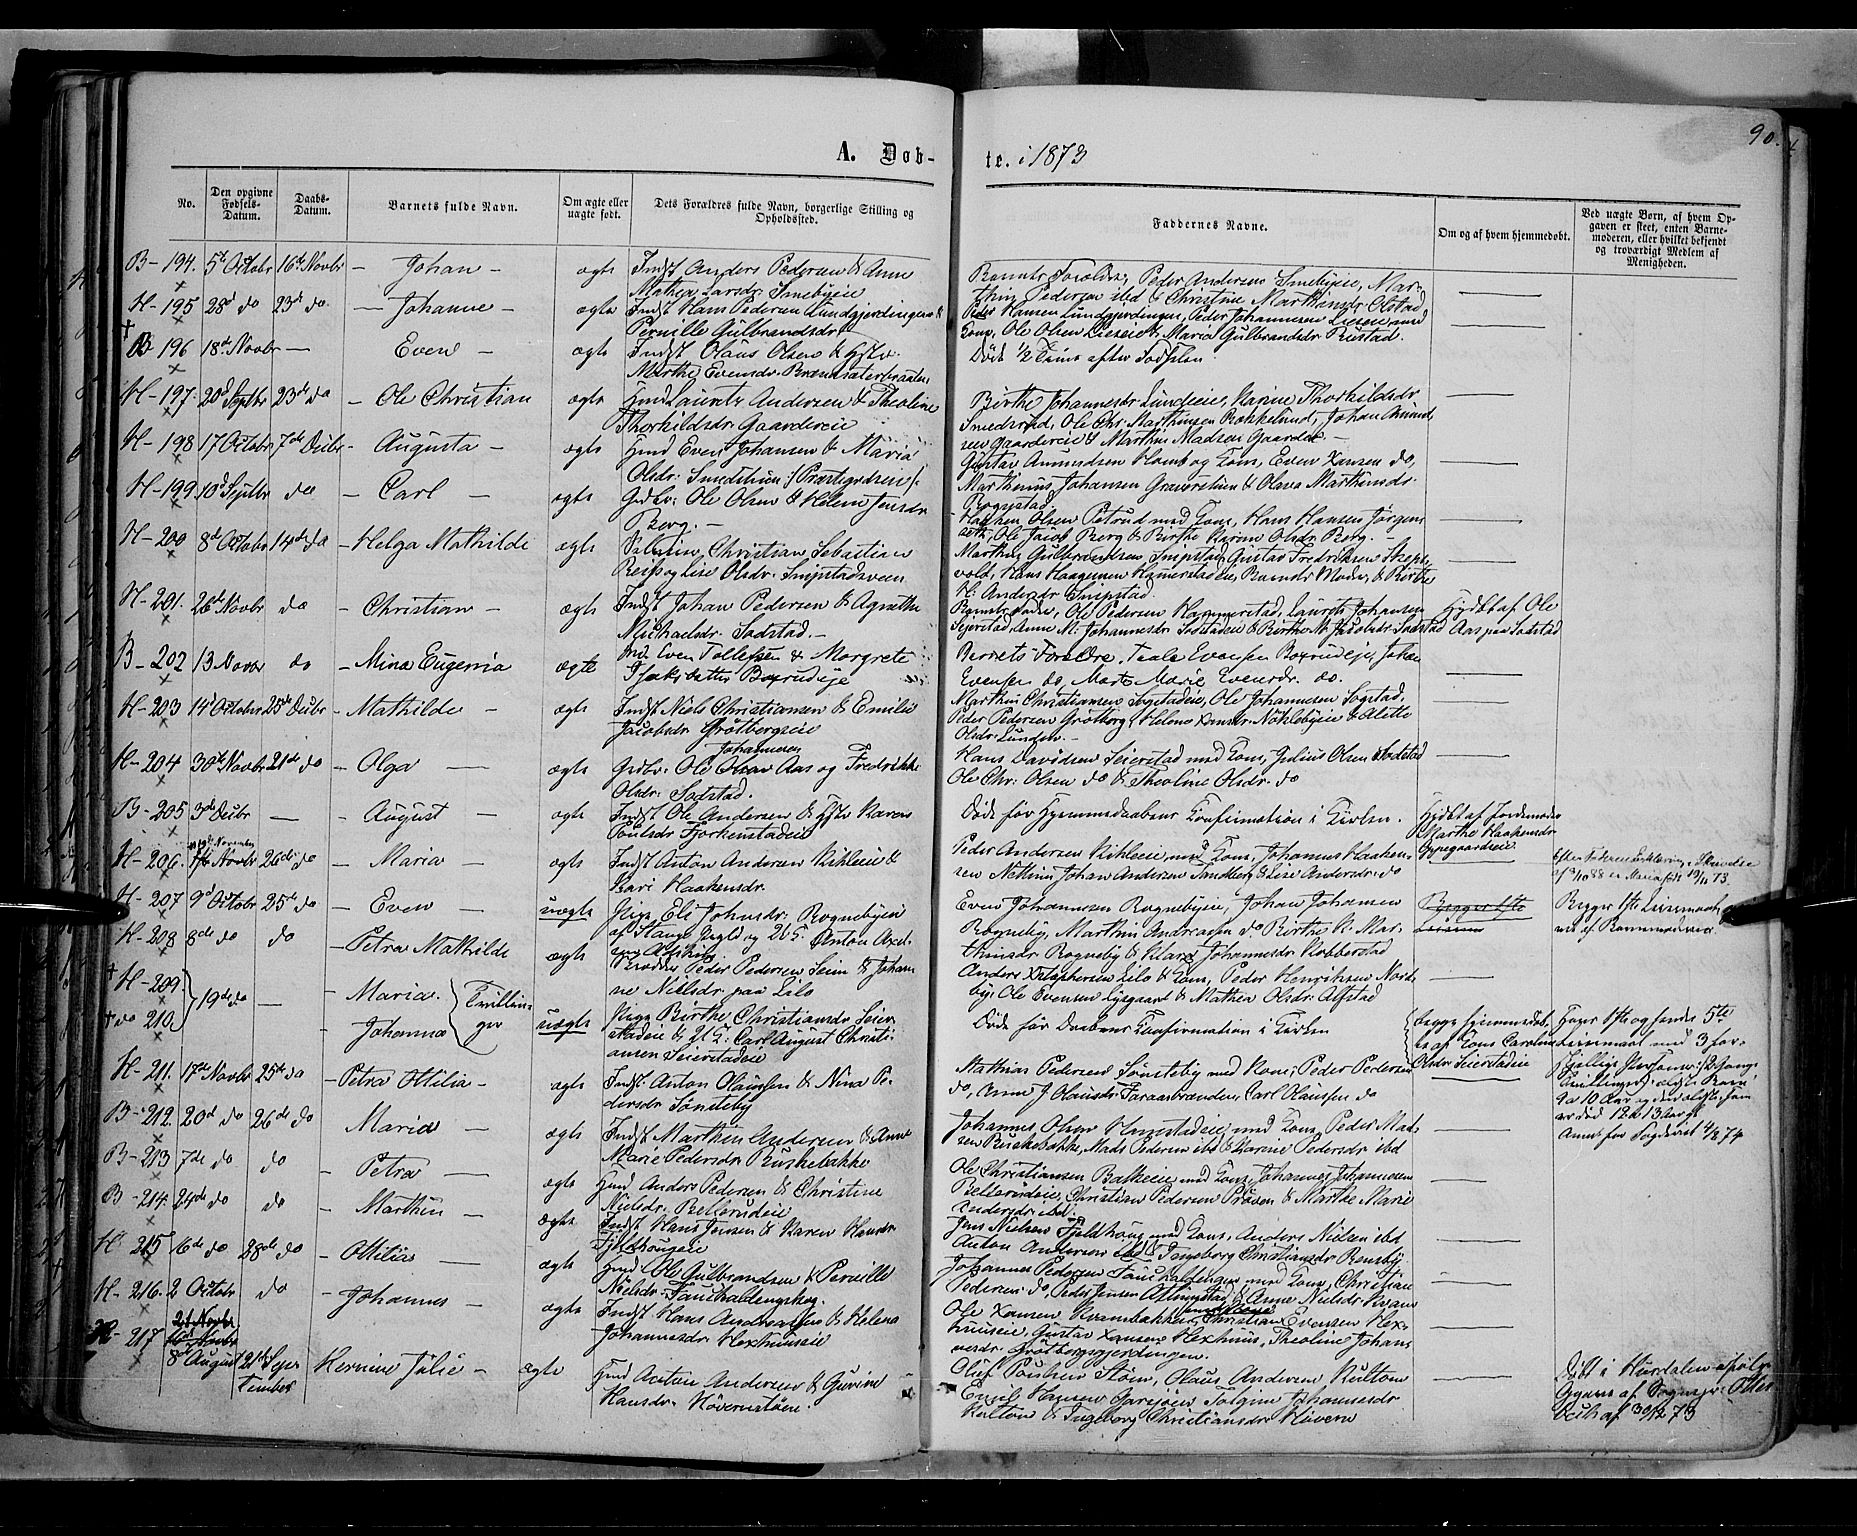 90.
A. Døb-
te. i 1873
No.
Den opgivne Fødsels-Datum.
Daabs-Datum.
Barnets fulde Navn.
Om ægte eller uægte født.
Dets Forældres fulde Navn, borgerlige Stilling og Opholdsted.
Faddernes Navne.
Om og af hvem hjemmedøbt.
Ved uægte Børn, af hvem Op-
gaven er skeet, enten Barne-
moderen, eller hvilket bekjendt
og troværdigt Medlem af
Menigheden.
B-194. 5te Octobr 16de Novbr - Johan - ægte Indst Anders Pedersen & Anne
Mathea Larsdr. Smebyeie
Barnets Forældre, Peder Andersen Smebyeie, Mar-
thin Pedersen ibd & Christine Marthinsdr. Olstad
H-195 28d do 23d do. - Johanne - ægte Indst Hans Pedersen Lundgjerdingen &
Pernille Gulbrandsdr
Peder Hansen Lundgjerdingen, Peder Johannesen
Kone, Ole Olsen & Maria Gulbrandsdr. Rustad.
† B 196 18de Novbr - Even - ægte Indst Olaus Olsen & Hstr.
Marthe Evensdr. Brænsæterbraaten
Døde 1/2 Time efter Fødselen.
H-197. 20d Septbr 23d do - Ole Christian ægte Hmd Lauritz Andersen & Theoline
Thorkildsdr Gaardereie
Birthe Johannesdr Lundeie, Karine Thorkildsdr
Smedsrud, Ole Chr. Marthinsen Bækkelund, Johan Amund-
sen Gaardereie & Marthin Madsen Gaarder -
H-198 17 Octobr 7de Decbr - Augusta - ægte Hmd Even Johansen & Maria
Olsdr. Smedstuen /: Præstegodsen :/
Gustav Amundsen Homb og Kone, Even Hansen do,
Marthinus Johansen Graverstuen & Olava Marthinsdr.
Rognstad.
H-199 10d Septbr do - Carl - ægte Grdbr: Ole Olsen & Helene Jensdr
Berg. -
Haaken Olsen Petrud med Kone, Hans Hansen Jørgens-
æth, Ole Jacob Berg & Birthe Karine Olsdr. Berg. -
H-200 8de Octobr 14de do - Helga Mathilde ægte Valentin Christian Sebastian
Reiss og Lise Olsdr. Snipstadsveen
Marthin Gulbrandsen Snipstad, Gustav Fredriksen
vold, Hans Haagensen Hamerstadeie, Barnets Moder, & Birthe
H: Andersdr Snipstad.
H-201. 26de Novbr do - Christian - ægte Indst Johan Pedersen & Agnethe
Michaelsdr. Sodstad. -
Barnets Fader, Ole Pedersen Hammerstad, Laurits Johansen
Seierstad, Anne M: Johannesdr Sodstadeie & Birthe M. Jacobsdr Sodstad
Hjdbt af Ole
Aas paa Sodstad
B-202 13 Novbr do - Mina Eugenia ægte Ind. Even Tollefsen & Margrete
Isaksdatter Boxrudeje
Barnets Forældre, Taale Evensen Boxrudeje, Johan
Evensen do, Marte Marie Evensdr. do.
H-203 14d Octobr 25de Decbr - Mathilde - ægte Indst Niels Christiansen & Emilie
Jacobsdr Grøtbergseie
Marthin Christiansen Sogstadeie, Ole Johannesen Sogstad,
Peder Pedersen Grøtberg, Helene Hansdr Nøklebyeie & Alette
Olsdr. Lundsh. -
H-204 30te Novbr 21de do - Olga - ægte Grdbr: Ole Johannesen Aas og Fredrikke
Olsdr. Sodstad.
Hans Davidsen Seierstad med Kone, Julius Olsen Sodstad
Ole Chr: Olsen do & Theoline Olsdr. do
B-205 3de Decbr - August - ægte Indst Ole Andersen & Hstr Karen
Poulsdr Fjorkenstadeie
Døde før Hjemmedaabens Confirmation i Kirken.
Hjdbt af Jordemoder
Marthe Haakensdr
H-206. Novbr 26de do - Maria - ægte Indst Anton Andersen Kihleeie &
Kari Haakensdr.
Peder Andersen Kihleeie med Kone, Johannes Haaken-
sen Nethins Johan Andersen Sandberg & Lise Andersdr. do
Efter Faderens Erklæring i Skrivelse
af 3/10 88 er Maria født 19/11 73.
H-207 9d Octobr 25de do - Even - uægte Pige Eli Johnsdr. Rognebyeie
af Stange Prgjld og 265. Anton Axel-
Even Johannesen Rognebyeie, Johan Johansen
Rogneby, Marthin Andreasen do, Birthe K. Mar-
thinsdr. Rogneby & Klara Johannesdr. Klobberstad
Begges 1ste Leiermaal
af Barnemoderen
H-208 8de do do - Petra Mathilde ægte Brødder Peder Pedersen Seim & Johan-
ne Nielsdr. paa Lilo
Anders Kristophersen Lilo & Kone, Peder Henriksen Nord-
by, Ole Evensen Lysgaard & Mathea Olsdr. Alfstad
† H-209. † do 210. 19de do - Maria. - Johanna Tvillin-
ger uægte Pige Birthe Christiansdr Seier-
stadeie & U.K. Carl August Christi-
ansen Seierstadeie
Døde før Daabens Confirmation i Kirken
Begge hjemmedøb-
te af Kone Caroline
Olsdr Seierstadeie
Hans 1ste og hendes 5te
Leiermaal med 3 for-
skjellige
Amt for 4/2 74
H-211. 17de Novbr 25de do - Petra Otilia - ægte Indst. Anton Olaussen & Nina Pe-
dersdr Sønsteby
Mathias Pedersen Sønsteby med Kone, Peder Pedersen
do, Anne J. Olausdr. Faraasbraaten, Carl Olaussen do
B-212. 20d do 26de do - Maria - ægte Indst Marthin Andersen & Anne
Marie Pedersdr. Buskebakke
Johannes Olsen med Kone, Peder Mad-
sen Buskebakke, Mads Pedersen ibd & Karine Pedersdr. ibd
B-213 7de do do - Petra - ægte Hmd Anders Pedersen & Christine
Nielsdr. Bellerudeie
Ole Christiansen Balkeeie med Kone, Johannes Johannesen
Bellerudeie, Christian Pedersen Prøven & Marthe Marie
Andersdr ibd.
B-214. 24de do do - Marthin - ægte Indst Hans Jensen & Karen Hansdr
Fjeldhougeie
Jens Nielsen Fjeldhoug med Kone, Anders Nielsen ibd
Anton Andersen ibd & Ingeborg Christiansdr Rensby
H 215 16de do 28de do - Ottilus - ægte Hmd Ole Gulbrandsen & Pernille
Nielsdr.
Johannes Pedersen med Kone, Christian
Pedersen do, Peder Jensen & Anne Nielsdr Kvam
H-216. 2 Octobr do - Johannes - ægte Indst Hans Andreassen & Helene
Johannesdr Hexhuuseie
Ole Hansen Kvambakken, Christian Evensen Hex-
huuseie, Gustav Hansen Hexhuus, Theoline Johan-
nesdr Grøtbergsgjerdingen.
H-217 21 Novbr 8d August 21de Sep-
tember Hermine Julie - ægte Hmd Anton Andersen & Gurine
Hansdr. Høvernstøen.
Oluf Poulsen Støen, Olaus Andersen Hultom
Emil Hansen Garsjøen Johannesdr
Hultom & Ingeborg Christiansdr Høvern
Døbt i Hurdalen ifølge
Opgave af Sogneprest
af 30/12 73